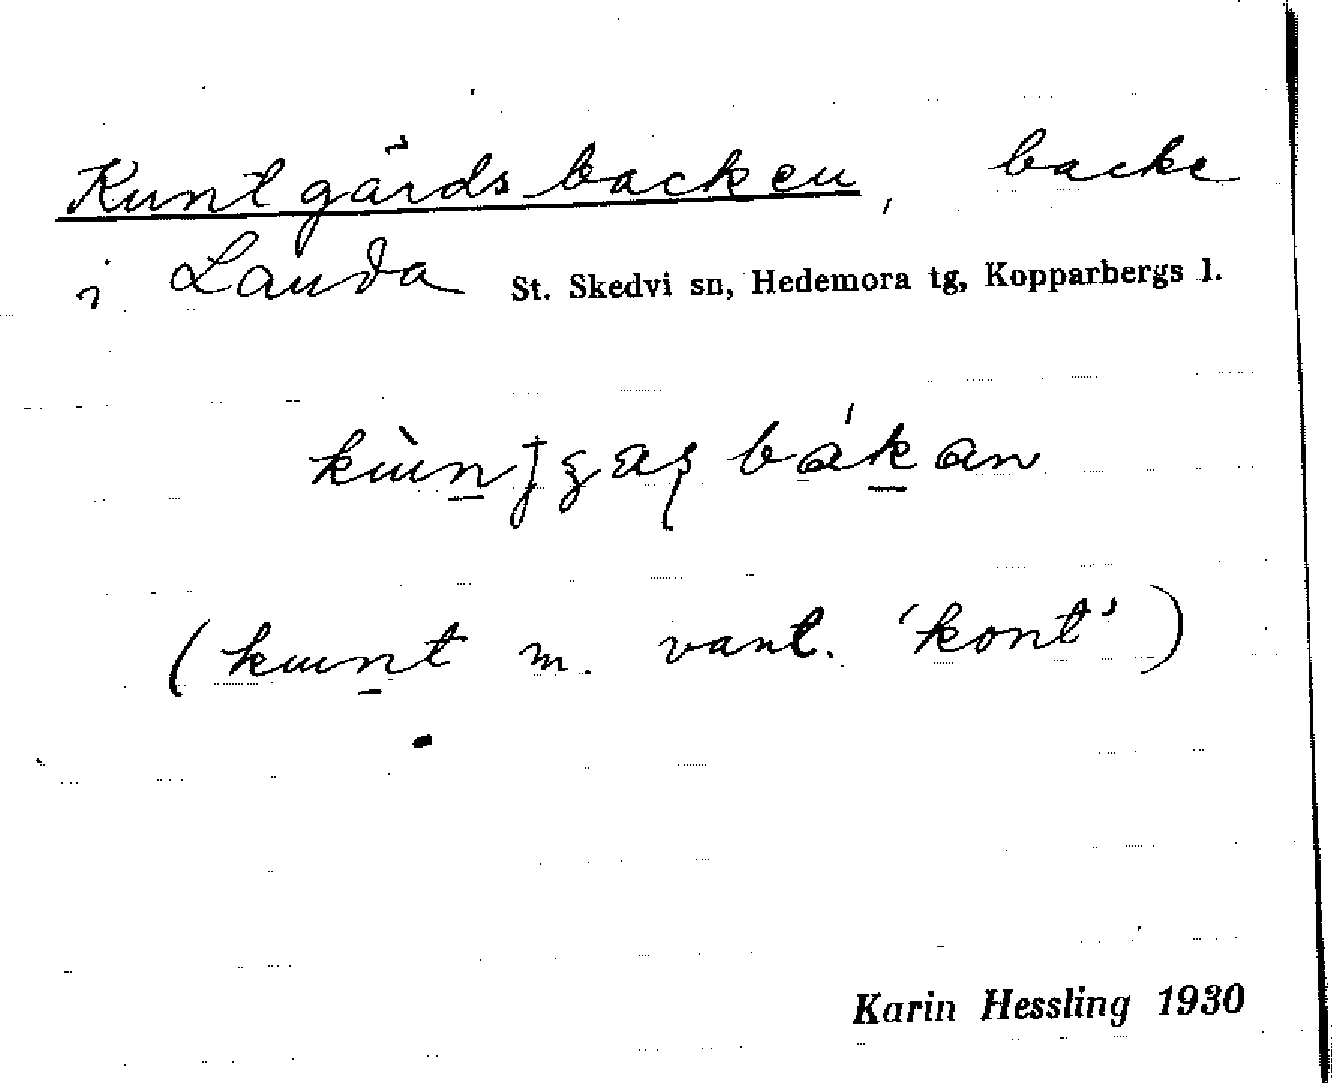 Kuntgårdsbacken, backe
i Landa St. Skedvi sn, Hedemora tg, Kopparbergs l.
(kunt m. vanl. 'kont')
Karin Hessling 1930